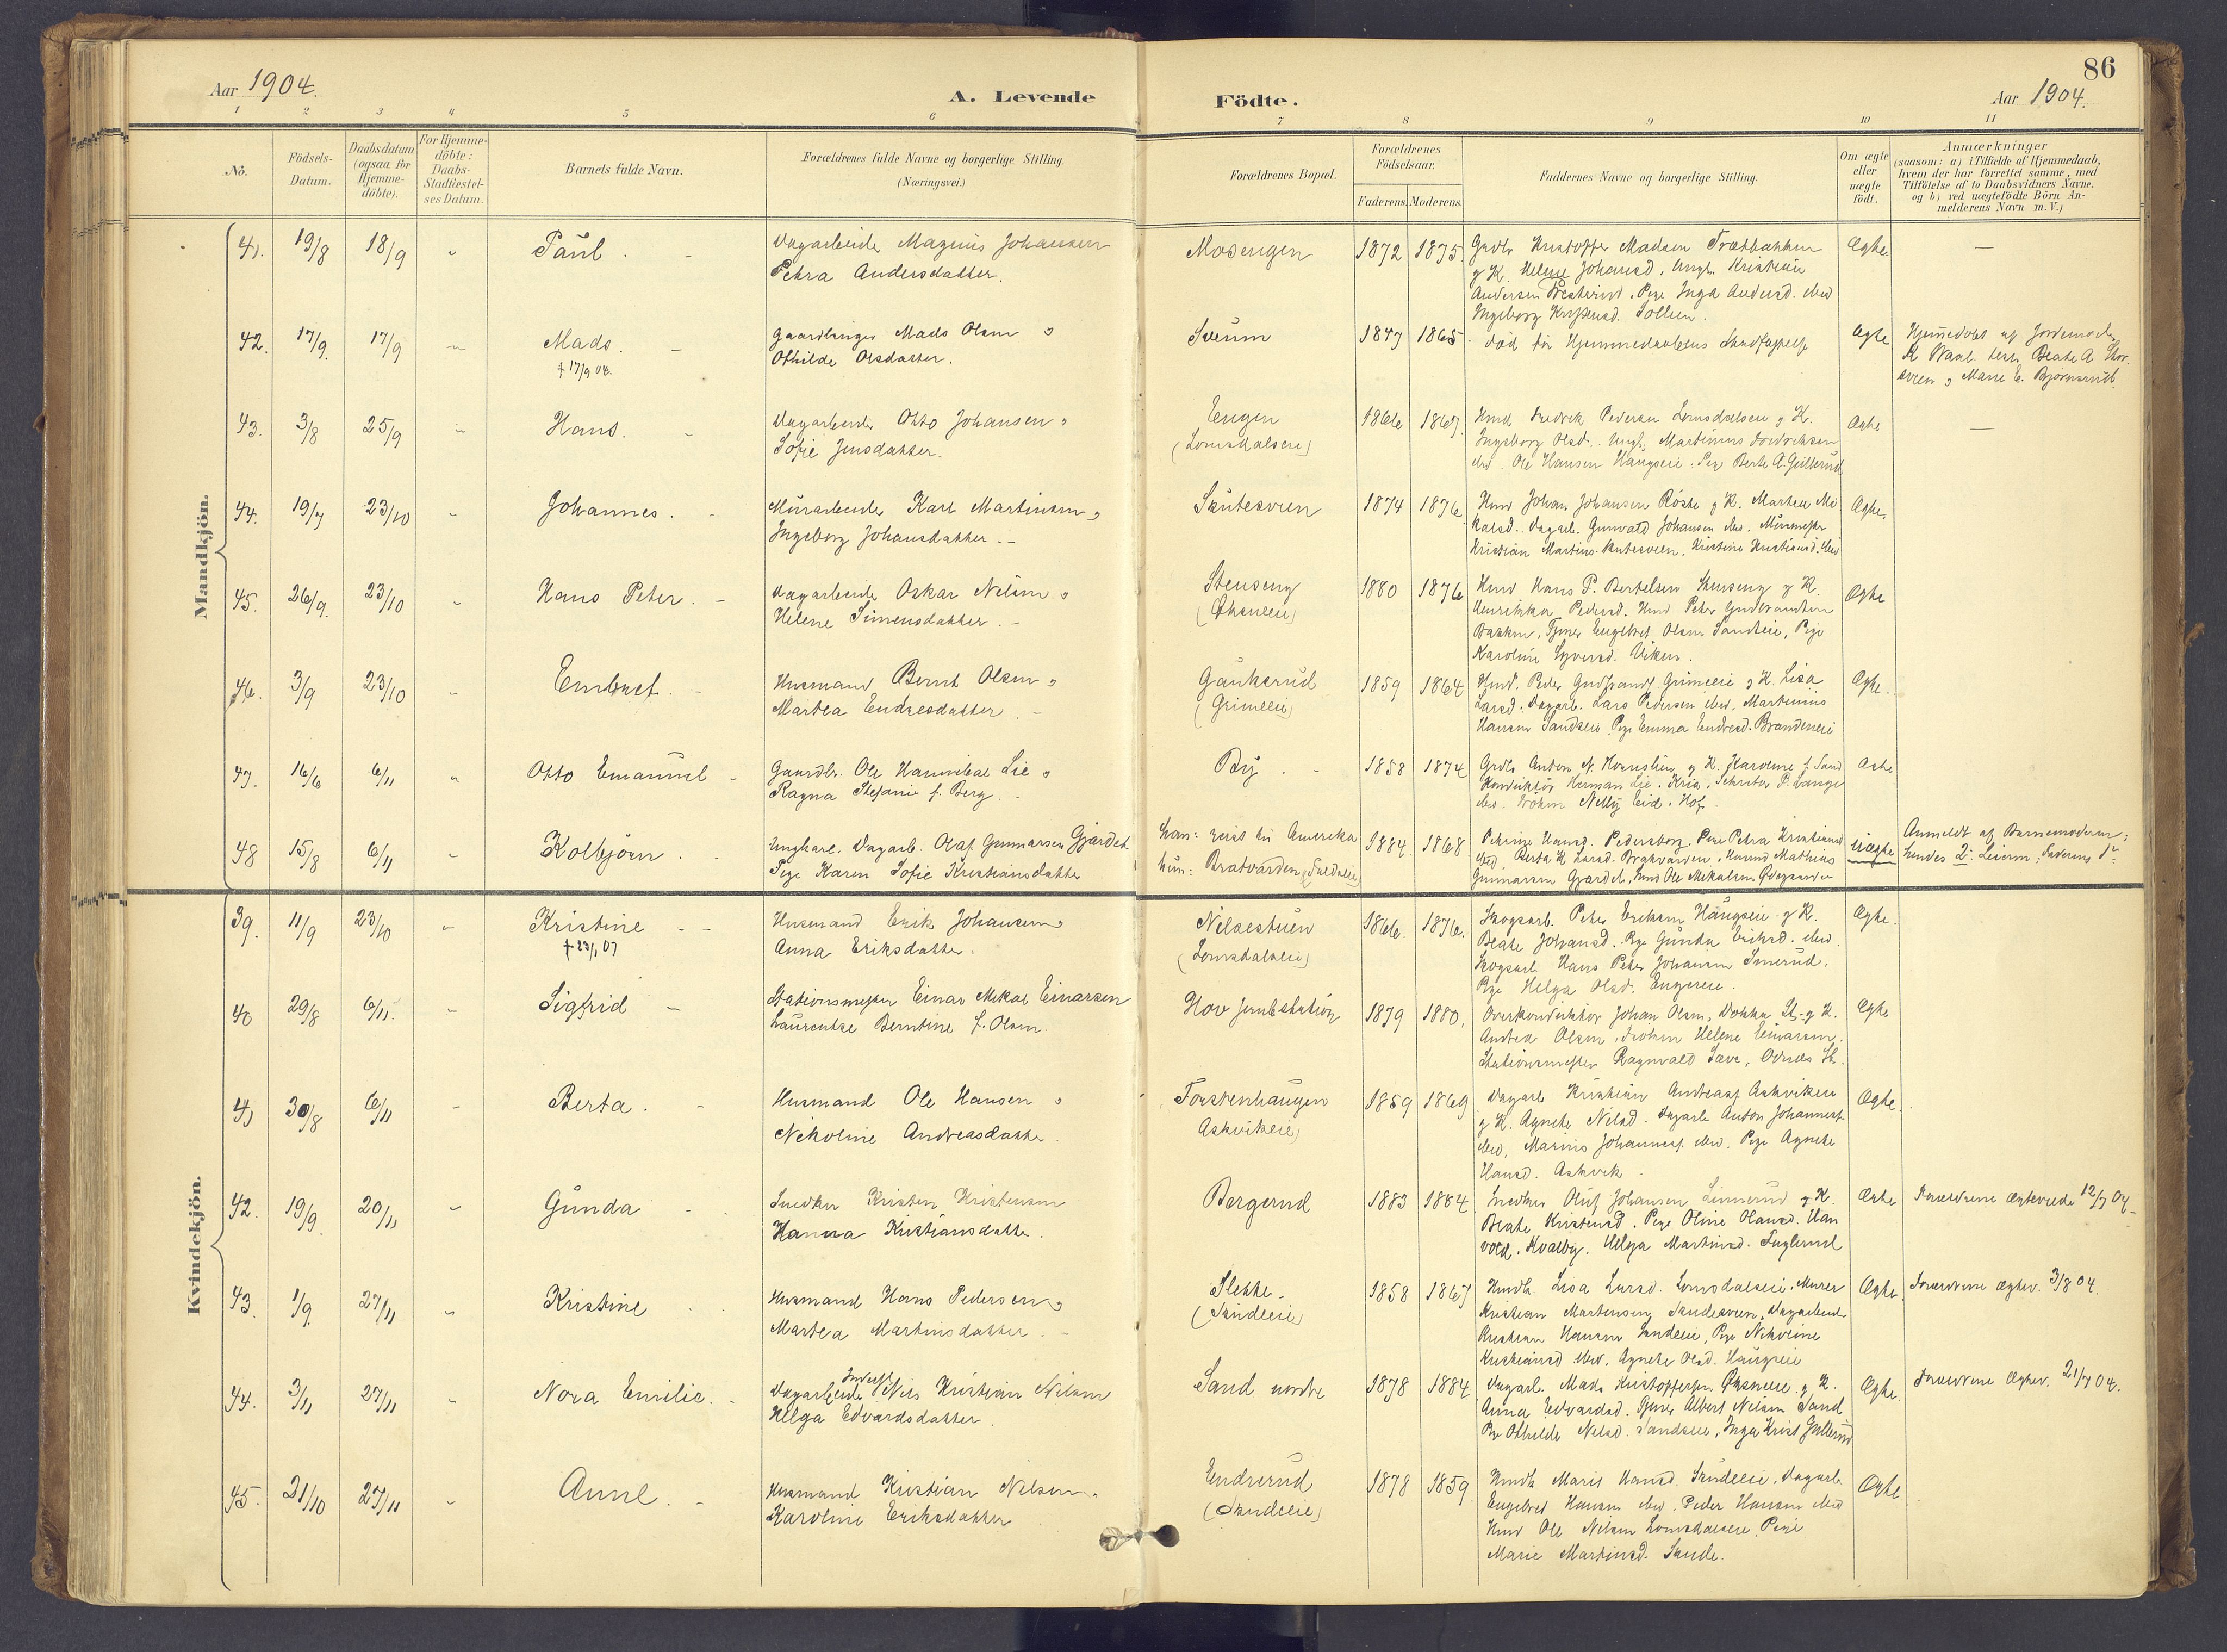 86
Aar 1904.
A. Levende Födte.
Aar 1904.
1 2 3 4 5 6 7 8 9 10 11
No.
Födsels-
Datum.
Daabsdatum
(ogsaa for
Hjemme-
döbte).
For Hjemme-
döbte:
Daabs-
Stadfæstel-
ses Datum.
Barnets fulde Navn.
Forældrenes fulde Navne og borgerlige Stilling.
(Næringsvei.)
Forældrenes Bopæl.
Forældrenes
Födselsaar.
Faderens. Moderens.
Faddernes Navne og borgerlige Stilling.
Om ægte
eller
uægte
födt.
Anmærkninger
(saasom: a) i Tilfælde af Hjemmedaab,
hvem der har forrettet samme, med
Tilföielse af to Daabsvidners Navne.
og b) ved uægtefödte Börn An-
melderens Navn m. V.)
Mandkjön.
41. 19/8 18/9 " Paul. -
Dagarbeider Magnus Johansen
Petra Andersdatter.
Mosengen
1872 1875
Grdbr Kristoffer Madsen
g K. Helene Johansd. Ungk. Kristian
Andersen Pige Inga Andersd. Ibid
Ingeborg
Ægte. —
42. 17/9. 17/9 " Mads. -
† 17/9 04.
Gaardbruger Mads Olsen o
Othilde Olsdatter.
Sveum
1847 1865.
död för Hjemmedaabens Stadfæstelse
Ægte
Hjemmedöbt af Jordemoder
K Waal. Beate A
o Marie E. Bjornerud
43. 3/8 25/9 " Hans. -
Dagarbeider Otto Johansen o
Sofie Jensdatter.
Engen
(Lomsdalseie)
1866 1867.
Hmd Fredrik Pedersen Lomsdalseie g K.
Ingeborg Olsd. Ungk. Martinius Fredriksen
ibid. Ole Hansen Haugseie. Pige Berte A. Gullerud
Ægte —
44. 19/7 23/10 " Johannes. -
Murarbeider Karl Martinsen o
Ingeborg Johansdatter. -
Skutesveen
1874 1876.
Hmd Johan Johansen Röste g K. Martea Mi
kalsd. Dagarb. Gunvald Johansen ibid. Murmester
Kristian Martins. Skutesveen, Kristine Kristiansd. ibid
Ægte.
45. 26/9. 23/10 " Hans Peter. -
Dagarbeider Oskar Nilsen o
Helene Simensdatter. -
Stenseng
1880 1876
Hmd Hans P. Bertelsen Stenseng g K.
Henrikka Pedersd. Hmd Peter Gudbrandsen
Bakken, Tjener Engebret Olsen Sandseie, Pige
Karoline Syversd. Viken.
Ægte
46. 3/9 23/10 " Embret. -
Husmand Bernt Olsen o
Martea Endresdatter. -
Gaukerud
(Grimeeie)
1859 1864
Hmd. Peder Gudbrands. Grimeeie g K. Lisa
Larsd. Dagarb. Lars Pedersen ibid. Martinius
Hansen Sandseie. Pige Emma Endresd. Brandeneie
Ægte.
47. 16/6 6/11 " Otto Emanuel -
Gaardbr. Ole Hannibal Lie o
Ragna Stefanie f. Berg. -
By. -
1858 1874
Grdbr Anton N. g K. Karoline f. Sand
Konduktör Herman Lie. Kria. P. Lange
ibid. Fröken Nelly Eid. Hof.
Ægte
48 15/8 6/11 " Kolbjörn. -
Ungkarl. Dagarb. Olaf Gunnarsen Gjærdet
Pige Karen Sofie Kristiansdatter
han: reist til Amerika
hun: Bratvarden
1884 1868.
Petrine Hansd. Pedersborg. Pige Petra Kristiansd
ibid, Berta K Larsd. Bratvarden. Mathias
Gunnarsen Gjærdet. Hmd Ole Mikalsen
uægte
Anmeldt af Barnemoderen;
hendes 2: Leierm; Faderens 1ste
Kvindekjön.
39. 11/9 23/10 " Kristine - -
† 23/1 07
Husmand Erik Johansen o
Anna Eriksdatter.
Nilsestuen
(Lomsdalseie)
1866. 1876.
Skogsarb. Peter Eriksen Haugseie g K.
Beate Johansd. Pige Gunda Eriksd. ibid.
Skogsarb. Hans Peter Johansen
Pige Helga Olsd. Engereie.
Ægte.
40 29/8 6/11. " Sigfrid -
Stationsmester Einar Mikal Einarsen
Laurentze Berntine f. Olsen.
Hov Jernbstation
1879 1880.
Overkonduktör Johan Olsen, Dokka St. g K.
Andrea Olsen. Fröken Helene Einarsen.
Stationsmester Ragnvald Odnes St.
Ægte
41 30/8 6/11 " Berta. -
Husmand Ole Hansen o
Nikoline Andreasdatter.
Torstenhaugen
Askvikeie
1859 1869
Dagarb Kristian Andreass Askvikeie
g K. Agnete Nilsd. Dagarb Anton Johanness
ibid, Marius Johanness. ibid. Pige Agnete
Hansd. Askvik
Ægte.
42. 19/9. 20/11 " Gunda -
Snedker Kristen Kristensen
Hanna Kristiansdatter.
Bergerud
1883 1884
Snedker Oluf Johansen Linnerud g K.
Beate Kristensd. Pige Oline Olausd. Hau
vold. Kvalby. Helga Martinsd. Fuglerud
Ægte
Forældrene ægteviede 12/7 04.
43. 1/9. 27/11 " Kristine -
Husmand Hans Pedersen o
Martea Martinsdatter. -
Slette.
(Sandseie)
1858 1867
Hmdk. Lisa Larsd. Lomsdalseie. Murer
Kristian Martinsen, Dagarbeid
Kristian Hansen Sandseie, Pige Nikoline
Kristiansd ibid. Agnete Olsd. Haugseie
Ægte.
Forældrene ægtev. 3/8 04.
44. 3/11 27/11 " Nora Emilie. -
Inderst
Dagarbeide Nils Kristian Nilsen
Helga Edvardsdatter.
Sand nordre
1878 1884
Dagarb. Mads Kristoffersen g K.
Anna Edvardsd. Tjener Albert Nilsen Sand
Pige Othilde Nilsd. Sandseie, Inga Krist Gullerud
Ægte.
Forældrene ægtev. 21/7 04.
45. 21/10 27/11 " Anne. -
Husmand Kristian Nilsen o
Karoline Eriksdatter
Endrerud
(Sandseie)
1878 1859
Hmdk Marit Hansd. Sandseie. Dagarb
Engebret Hansen ibid. Peder Hansen ibid
Hmd Ole Nilsen Lomsdalseie. Pige
Marie Martinsd. Sande.
Ægte